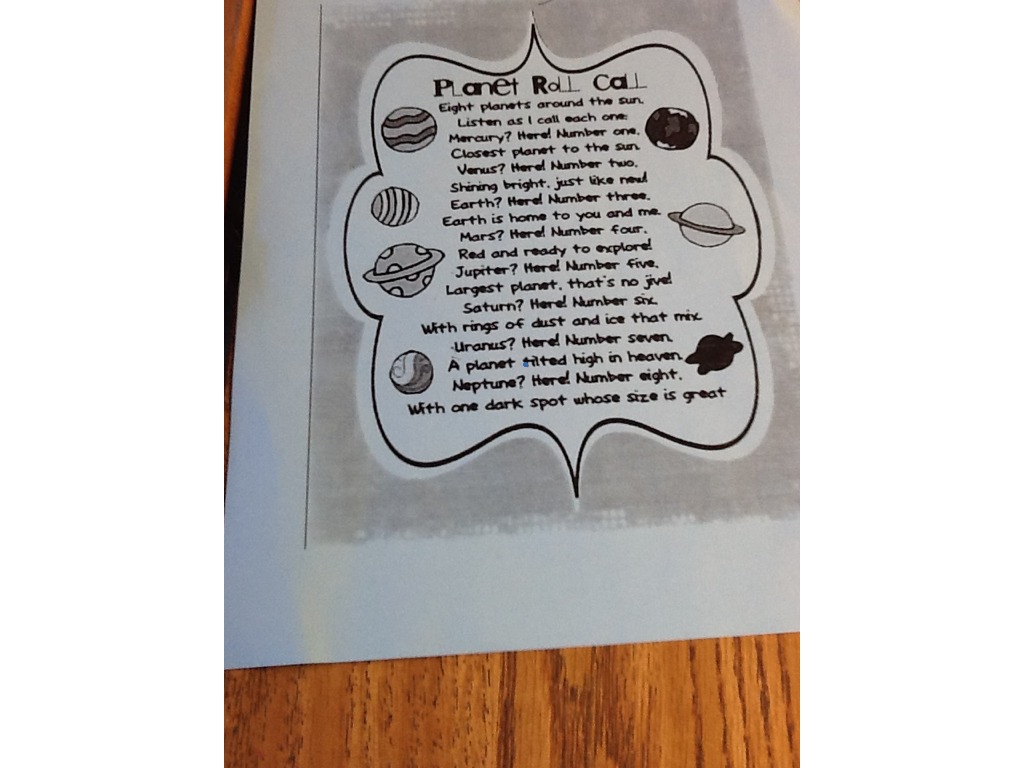 Planet Roll Call
Eight planets around the sun.
Listen as I call each one:
Mercury? Here! Number one.
Closest planet to the sun.
Venus? Here! Number two.
Shining bright, just like new!
Earth? Here! Number three.
Earth is home to you and me.
Mars? Here! Number four.
Red and ready to explore!
Jupiter? Here! Number five.
Largest planet, that's no jive!
Saturn? Here! Number six.
With rings of dust and ice that mix.
Uranus? Here! Number seven.
A planet tilted high in heaven.
Neptune? Here! Number eight.
With one dark spot whose size is great